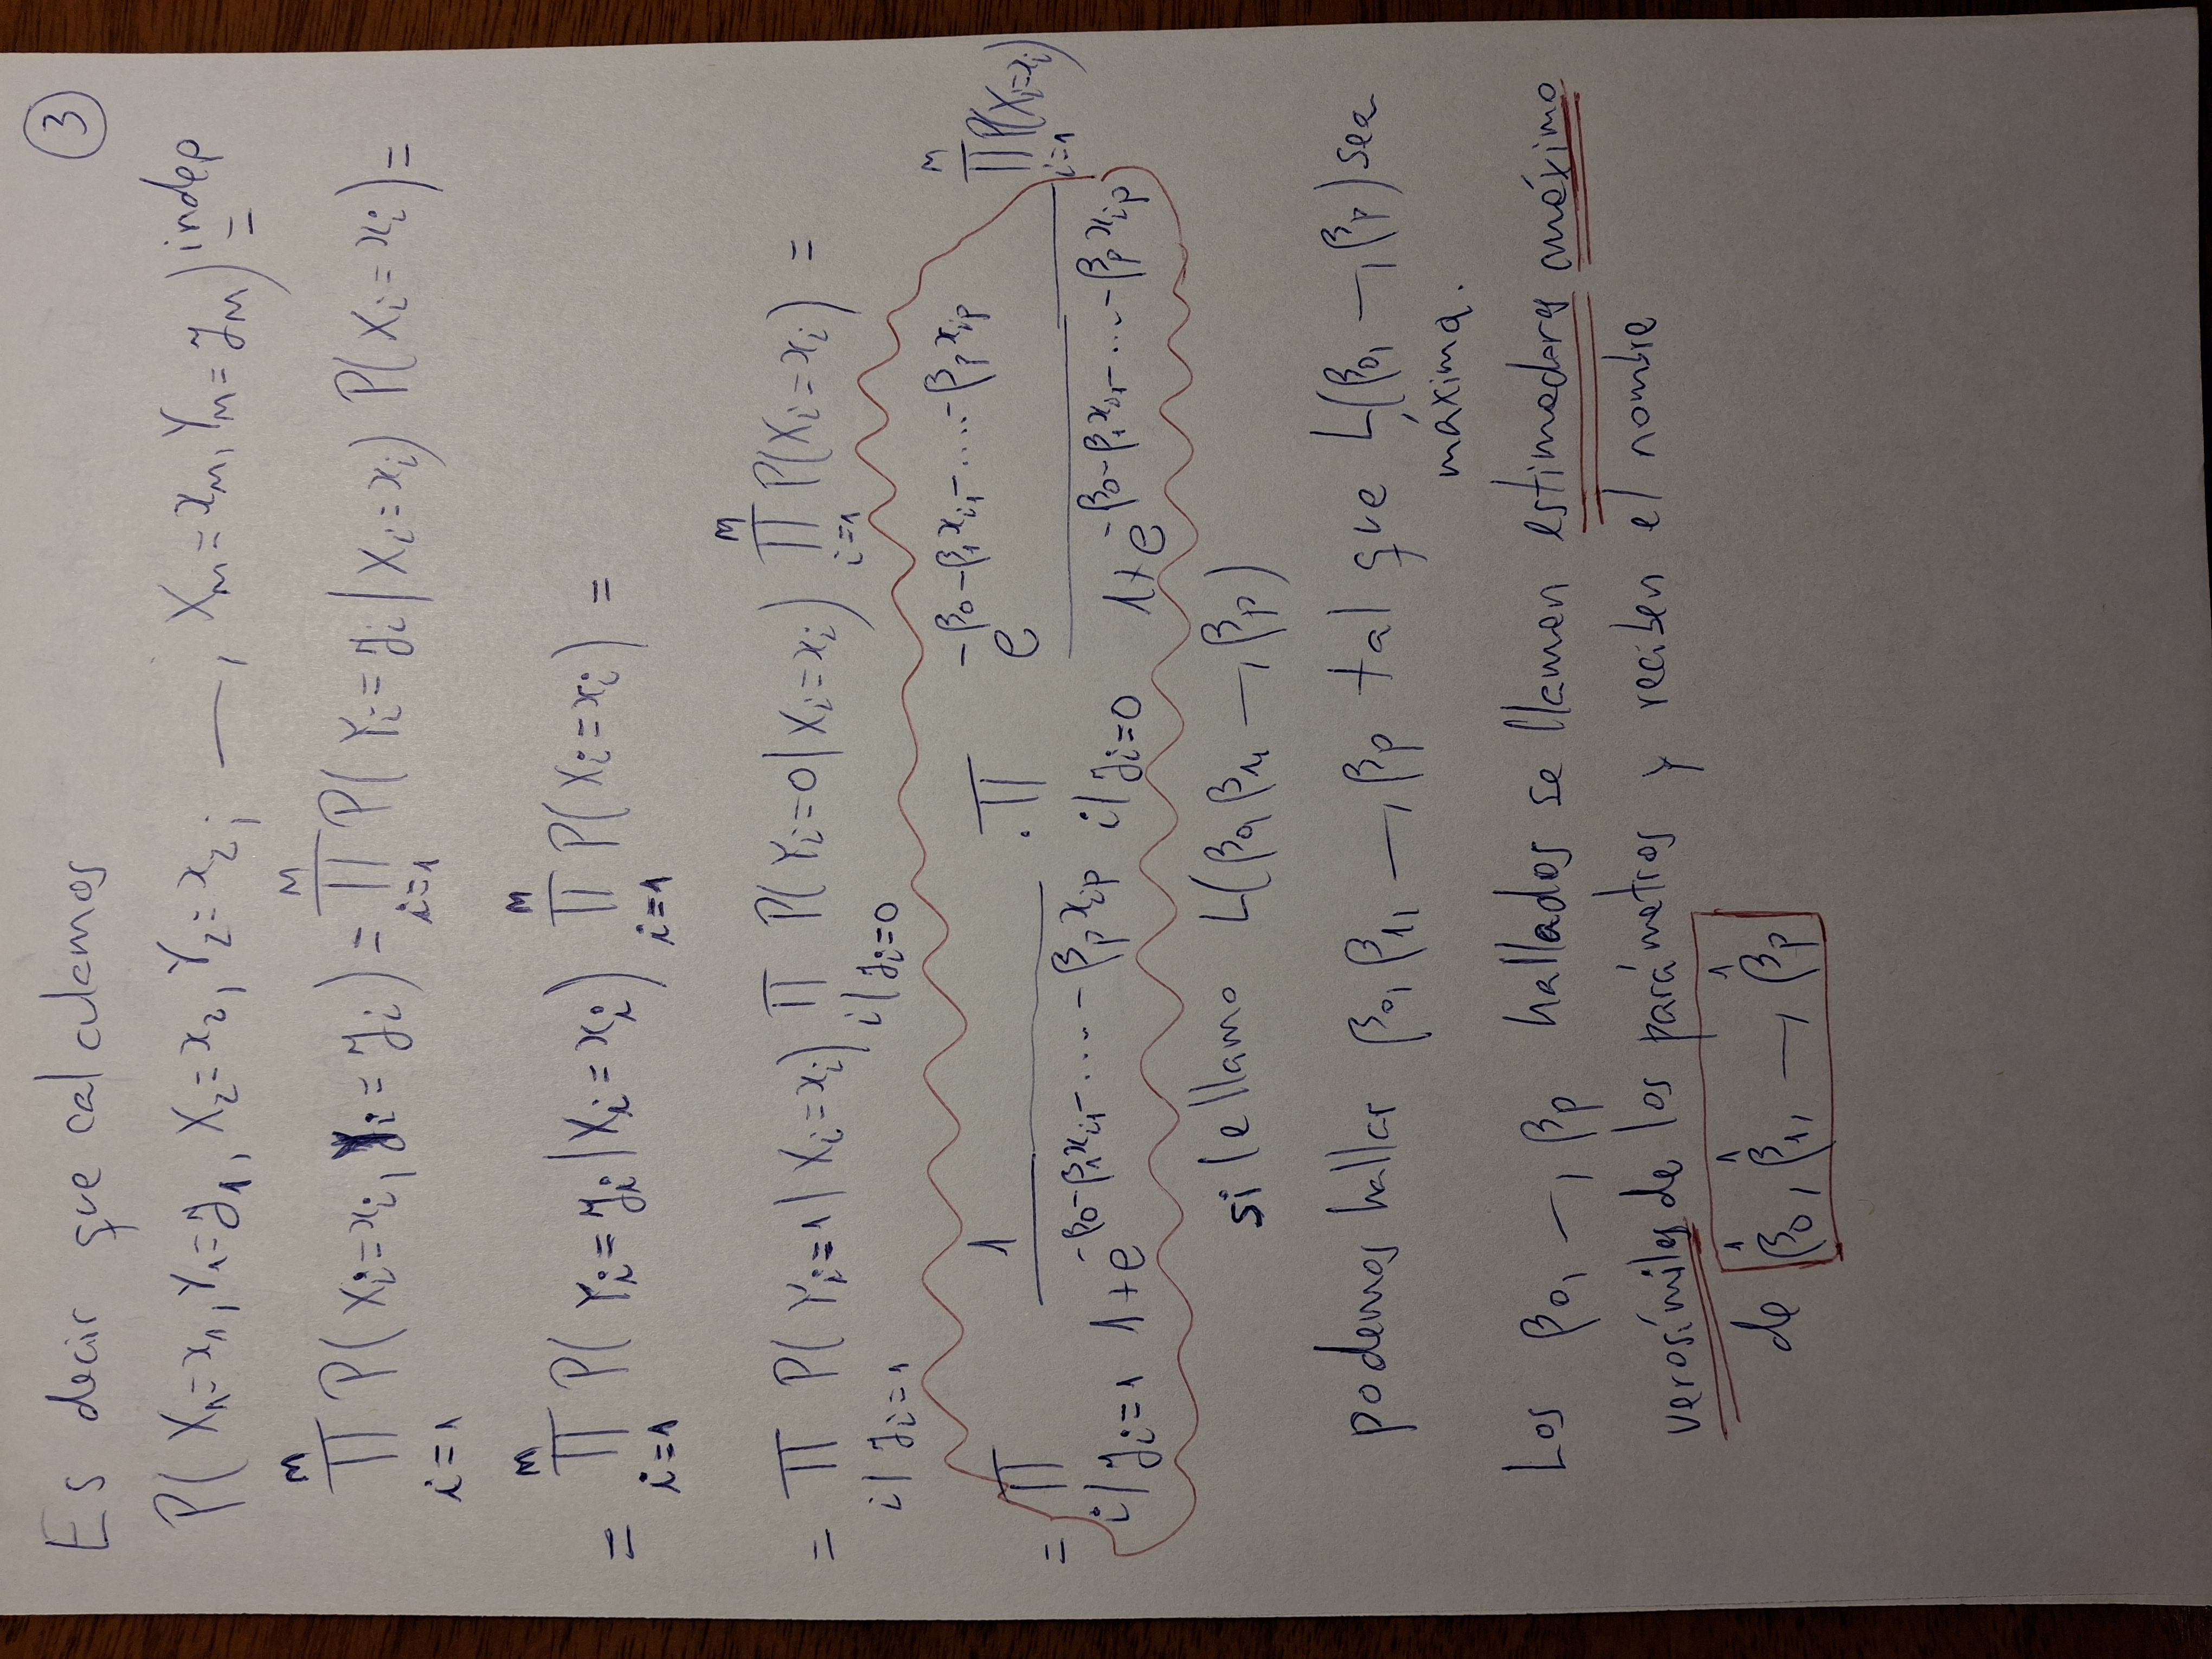 ③
Es decir que calculemos
P(X₁=x₁,Y₁=y₁, X₂=x₂,Y₂=x₂; —, Xₙ=xₙ,Yₙ=yₙ) indep =
∏ᵢ₌₁ⁿ P(Xᵢ=xᵢ,yᵢ=yᵢ) = ∏ᵢ₌₁ⁿ P(Yᵢ=yᵢ|Xᵢ=xᵢ) P(Xᵢ=xᵢ) =
= ∏ᵢ₌₁ⁿ P(Yᵢ=yᵢ|Xᵢ=xᵢ) ∏ᵢ₌₁ⁿ P(Xᵢ=xᵢ) =
= ∏_{i|yᵢ=1} P(Yᵢ=1|Xᵢ=xᵢ) ∏_{i|yᵢ=0} P(Yᵢ=0|Xᵢ=xᵢ) ∏ᵢ₌₁ⁿ P(Xᵢ=xᵢ) =
= ∏_{i|yᵢ=1} 1/(1+e^{-β₀-β₁xᵢ₁-....-βₚxᵢₚ}) · ∏_{i|yᵢ=0} e^{-β₀-β₁xᵢ₁-.....-βₚxᵢₚ}/(1+e^{-β₀-β₁xᵢ₁-....-βₚxᵢₚ}) ∏ᵢ₌₁ⁿ P(Xᵢ=xᵢ)
si le llamo L(β₀,β₁, —, βₚ)
podemos hallar β₀,β₁, —, βₚ tal que L(β₀, —, βₚ) sea
máxima.
Los β₀, —, βₚ hallados se llamen estimadores máximo
verosímiles de los parámetros y reciben el nombre
de β̂₀, β̂₁, —, β̂ₚ